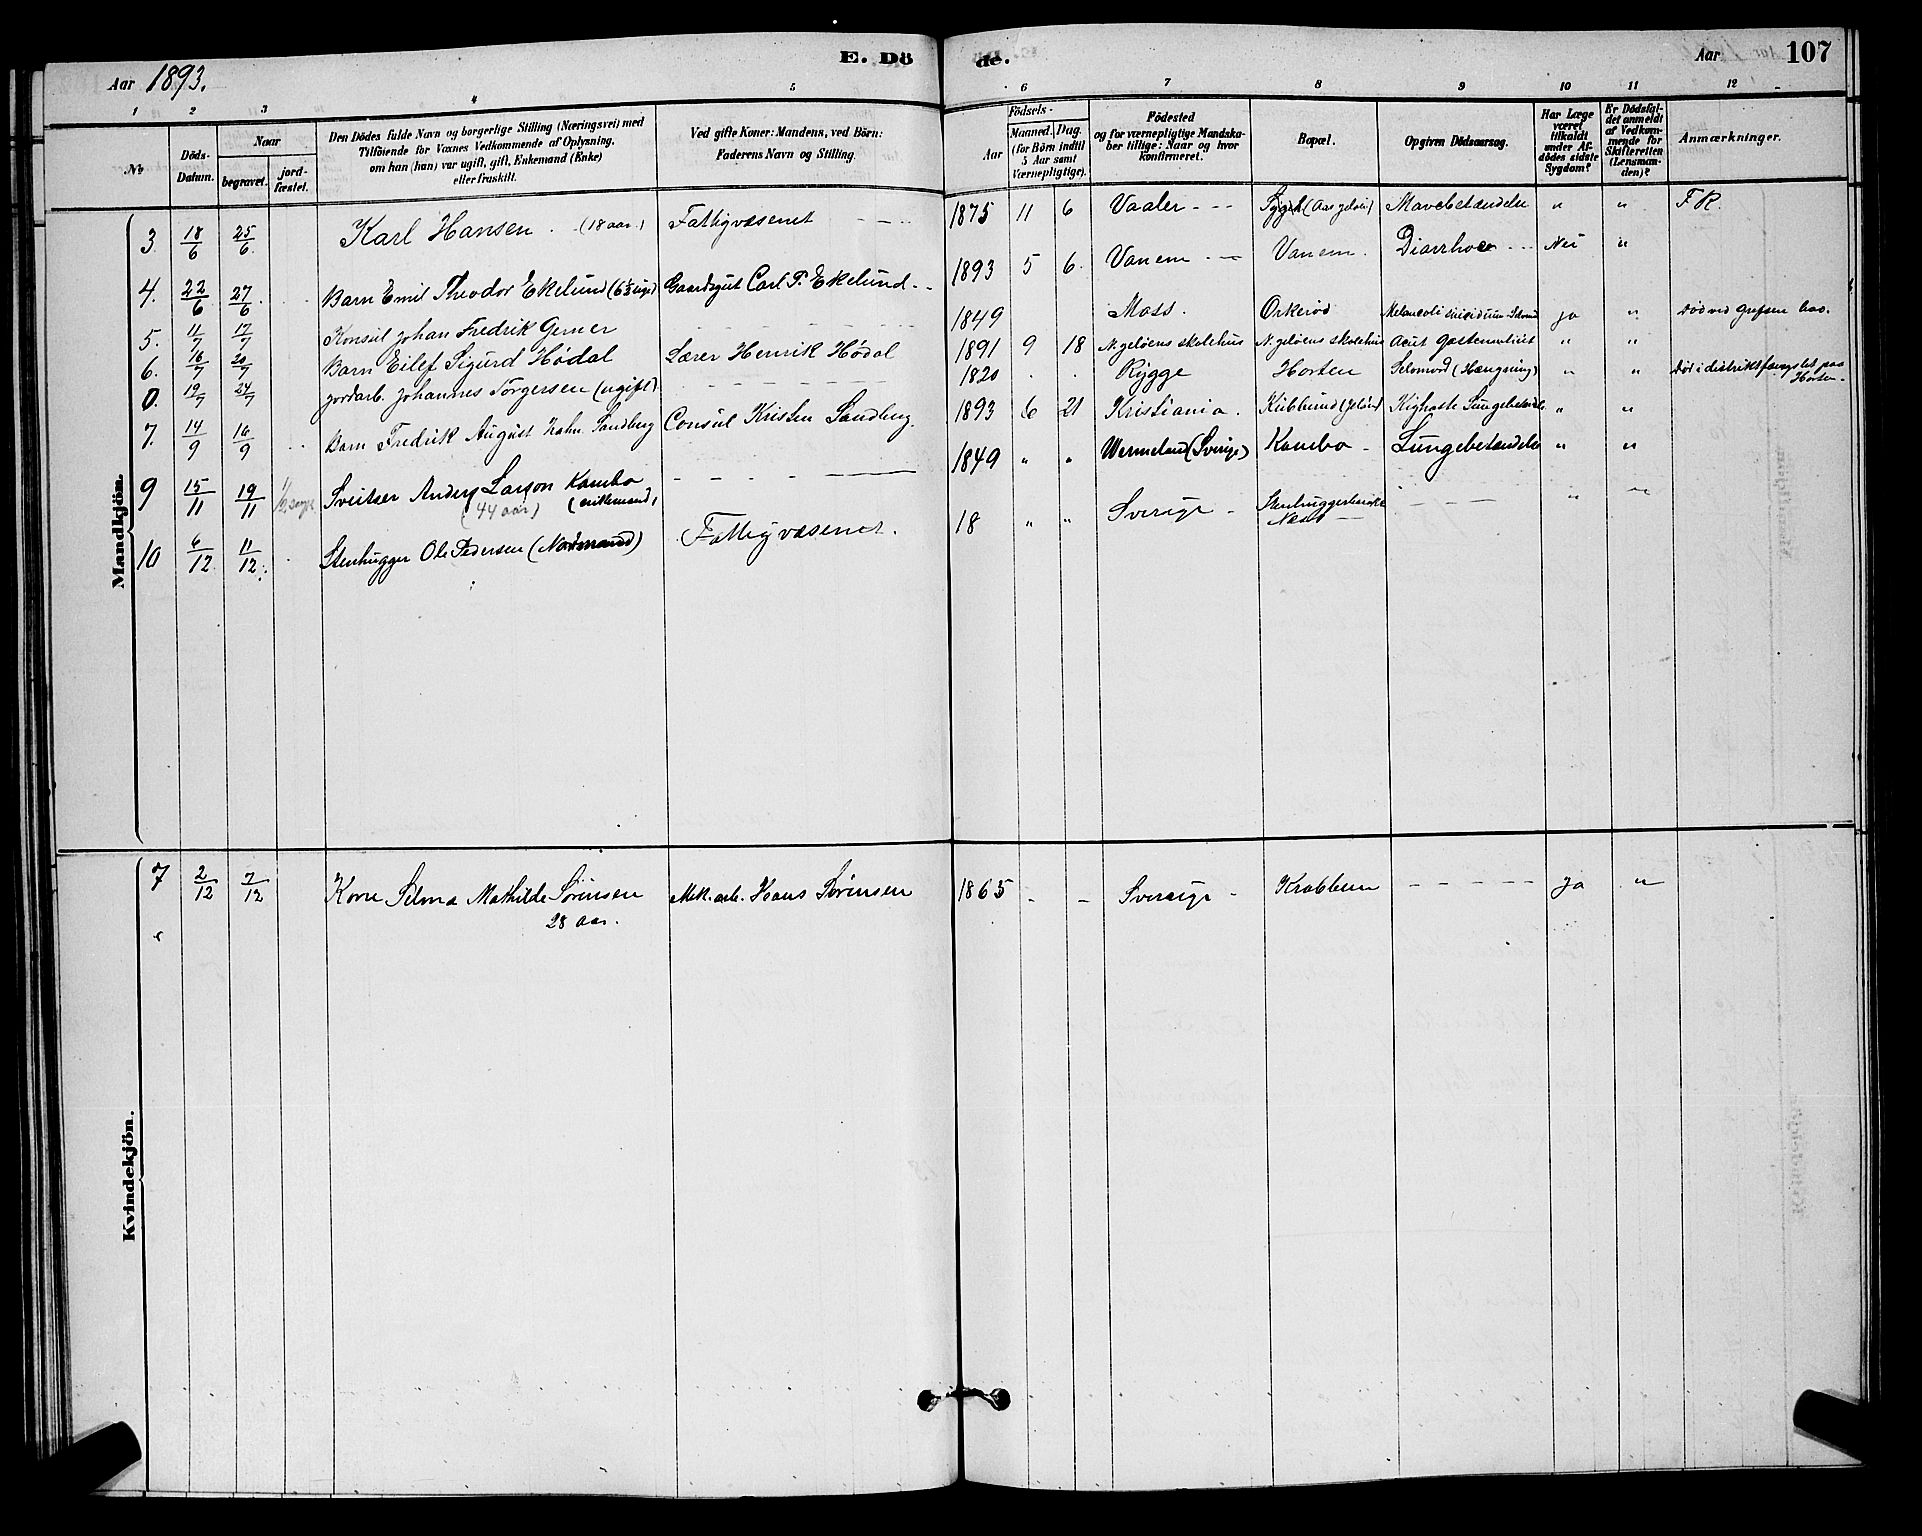 E. Dö de.
Aar 1893.
Aar 107
1 2 3 4 5 6 7 8 9 10 11 12
No
Döds-Datum.
Naar
begravet.
jord-fæstet.
Den Dödes fulde Navn og borgerlige Stilling (Næringsvei) med Tilföiende for Voxnes Vedkommende af Oplysning, om han (hun) var ugift, gift, Enkemand (Enke) eller fraskilt.
Ved gifte Koner: Mandens, ved Börn: Faderens Navn og Stilling.
Födsels-
Aar
Maaned. Dag.
(for Börn indtil 5 Aar samt Værnepligtige).
Födested og for værnepligtige Mandskaber tillige: Naar og hvor konfirmeret.
Bopæl.
Opgiven Dödsaarsag.
Har Læge været tilkaldt under Afdødes sidste Sygdom?
Er Dödsfaldet anmeldt af Vedkommende for Skifteretten (Lensmanden)?
Anmærkninger.
Mandkjön.
3. 18/6 25/6 Karl Hansen (18 aar) Fattigvæsenet 1875 11 6 Vaaler Mavebetændelse " " F R.
4. 22/6 27/6 Barn Emil Theodor Ekelund (6½ uge) Gaardsgut Carl P. Ekelund 1893 5 6 Vanem Vanem. Diarrhoe Nei "
5. 11/7 17/7 Konsul Johan Fredrik Gerner 1849 Moss. Orkerød Melancoli suicidium ja " Død ved Grefsen bad.
6. 16/7 20/7 Barn Eilef Sigurd Hødal Lærer Henrik Hødal 1891 9 18 N. Jeløens skolehus N. Jeløens skolehus Acut " "
0. 19/7 24/7 Jordarb. Johannes Torgersen (ugift) 1820 Rygge Horten Selvmord (Hængning) " " Død i distriktsfængslet paa Horten.
7. 14/9 16/9 Barn Fredrik August Sandberg Consul Kristen Sandberg. 1893 6 21 Kristiania. Kubberud (Jeløen) Kighoste Lungebetændelse " "
9 15/11 19/11 Sveitser Anders Larson Kambo (44 aar) (enkemand) 1849 " " Wermeland (Sverige) Kambo Lungebetændelse " "
10 6/12 11/12 Stenhugger Ole Pedersen (Nordmand) Fattigvæsenet. 18 " " Sverige " "
Kvindekjön.
7 2/12 7/12 Kone Selma Mathilde Sørensen Mek. arb. Hans Sørensen 1865 Sverige Krabbeun Ja "
28 aar.